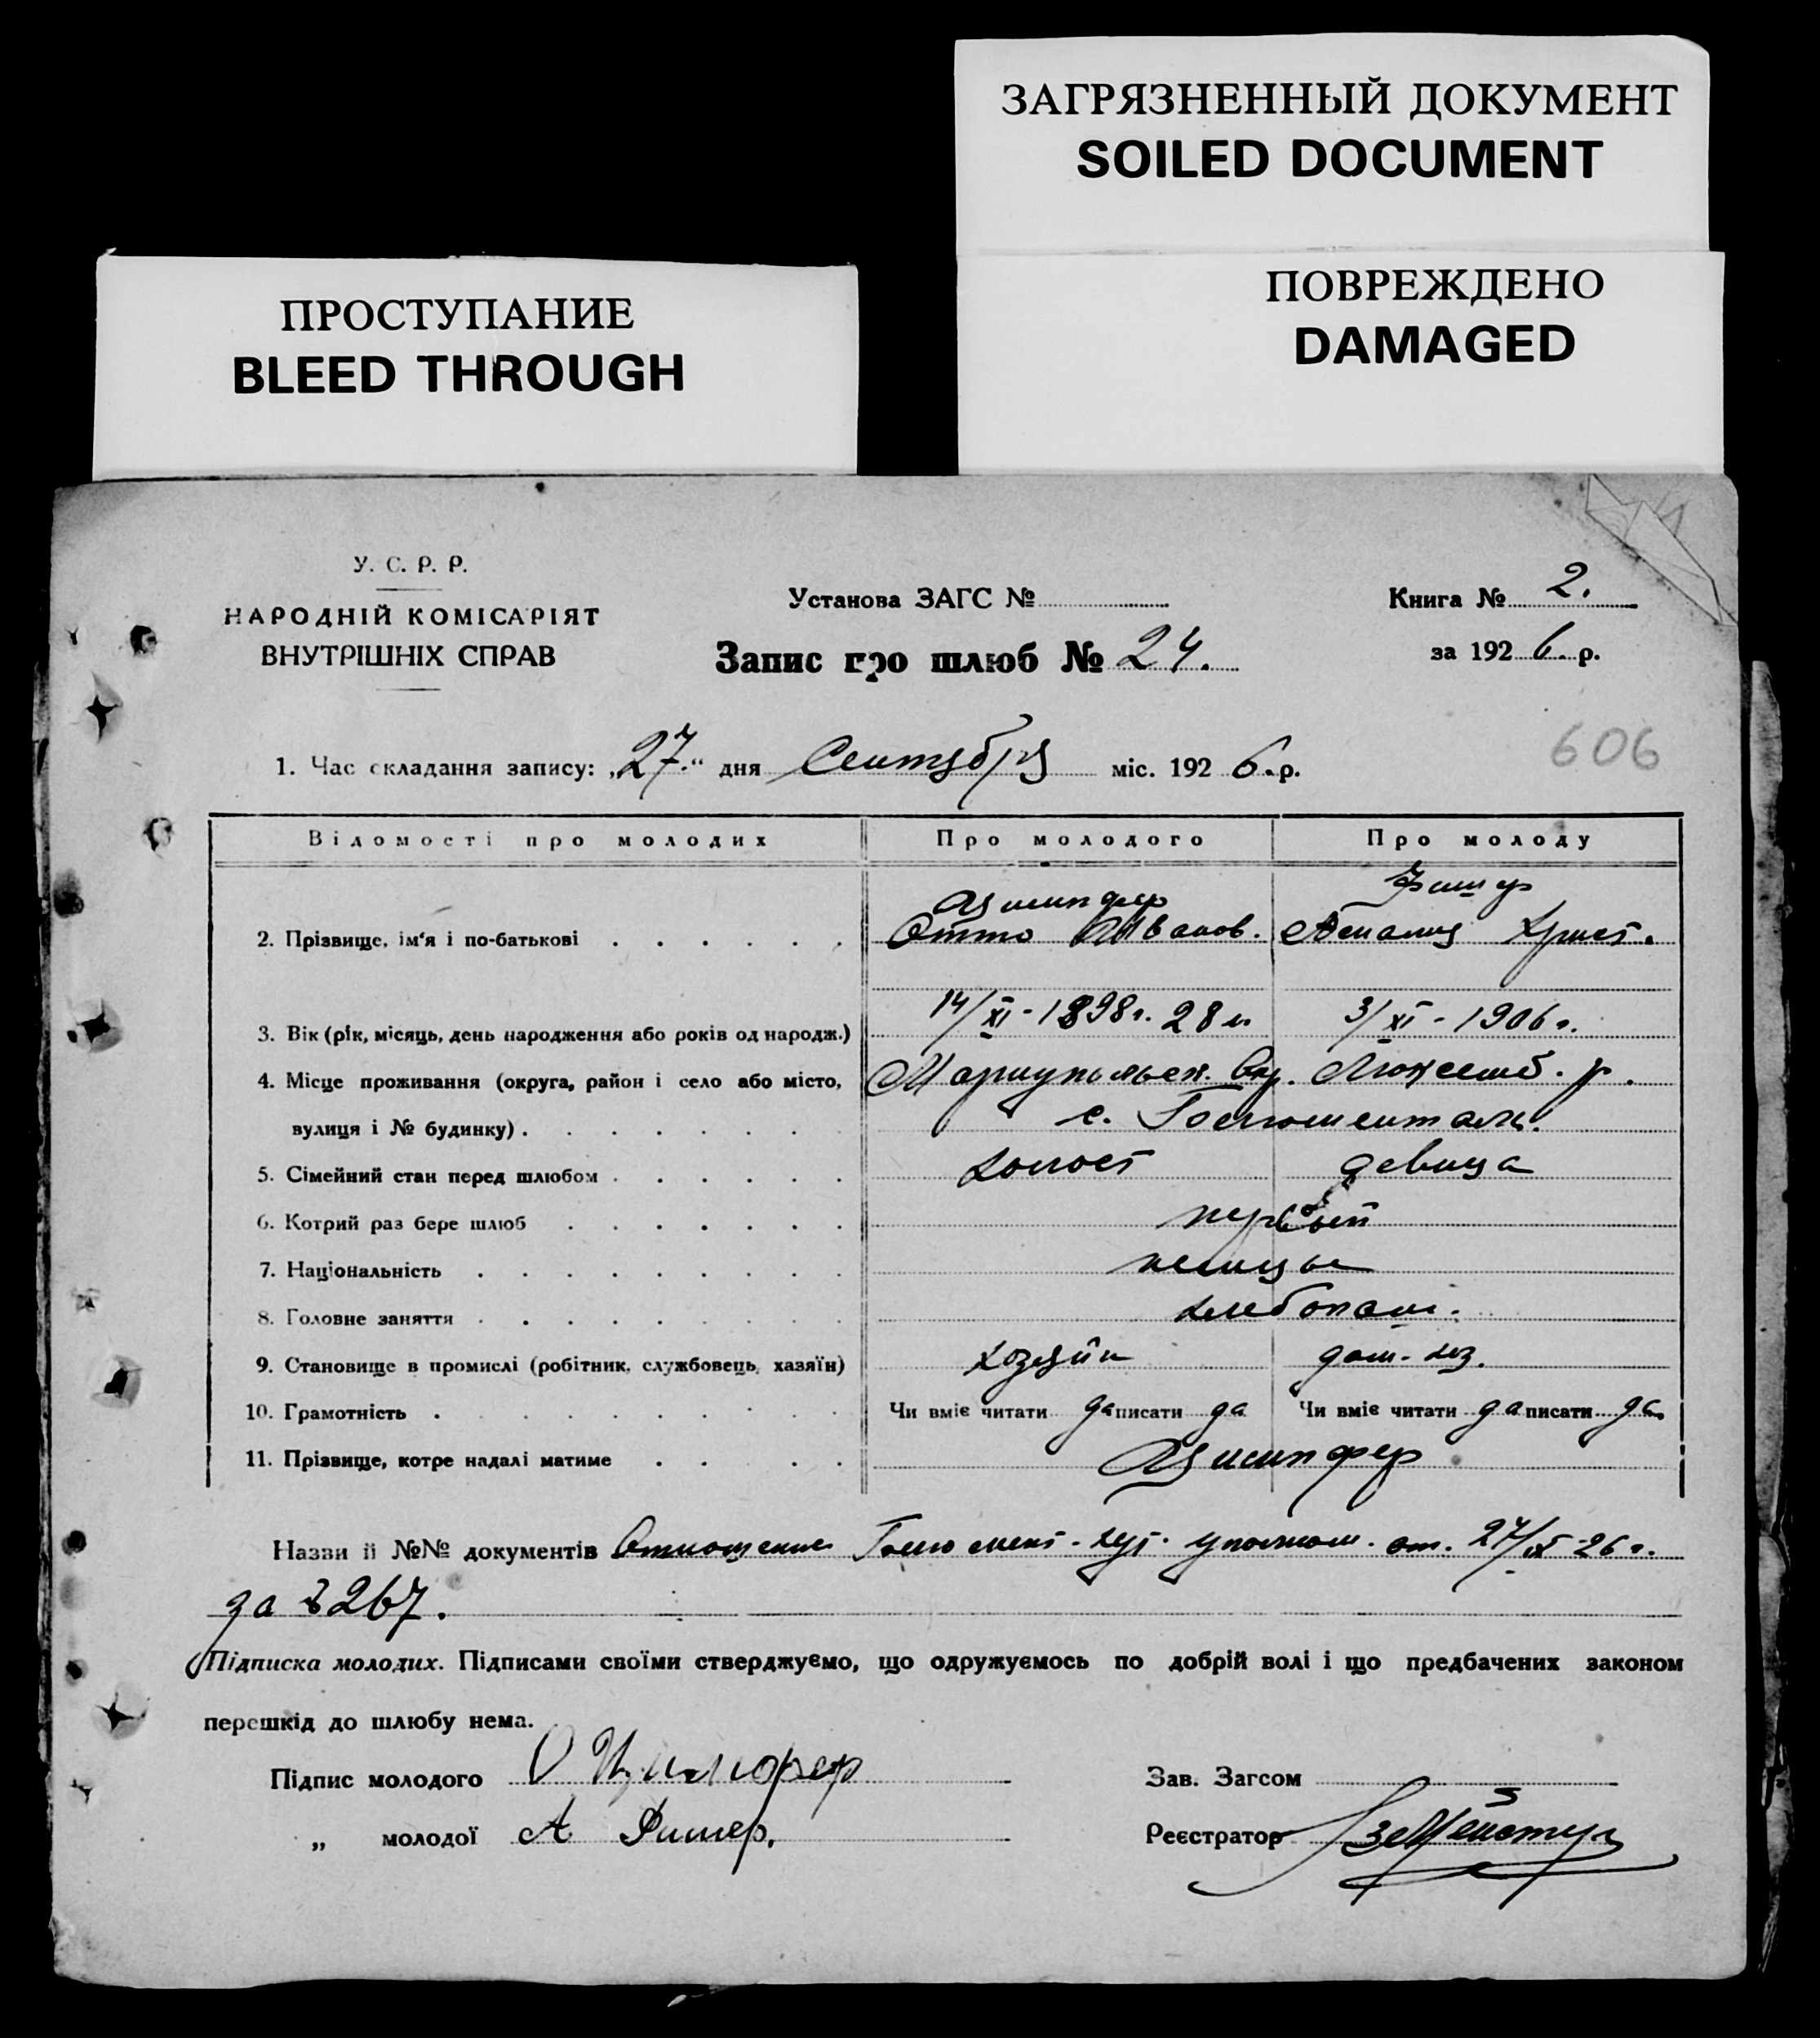 ЗАГРЯЗНЕННЫЙ ДОКУМЕНТ
SOILED DOCUMENT
ПРОСТУПАНИЕ
BLEED THROUGH
ПОВРЕЖДЕНО
DAMAGED
У. С. Р. Р.
НАРОДНІЙ КОМІСАРІЯТ
ВНУТРІШНІХ СПРАВ
Установа ЗАГС №
Книга № 2.
Запис про шлюб № 24.
за 1926. р.
606
1. Час складання запису: „27.“ дня Сентября міс. 1926. р.
Відомості про молодих Про молодого Про молоду
Цимпфер Фишер
2. Прізвище, ім'я і по-батькові Отто Иванов. Христ.
14/XI-1898г. 28 л. 3/XI-1906г.
3. Вік (рік, місяць, день народження або років од народж.)
4. Місце проживання (округа, район і село або місто, Мариупольск. Окр. Люксемб. р.
вулиця і № будинку) с.
5. Сімейний стан перед шлюбом холост девица
6. Котрий раз бере шлюб первый
7. Національність немцы
8. Головне заняття хлебопаш.
9. Становище в промислі (робітник, службовець, хазяїн) хозяин дом. хоз.
10. Грамотність Чи вміє читати да писати да Чи вміє читати да писати да
11. Прізвище, котре надалі матиме Цимпфер
Назви й №№ документів Отношение уполном. от. 27/IX-26г.
за 3267.
Підписка молодих. Підписами своїми стверджуємо, що одружуємось по добрій волі і що предбачених законом
перешкід до шлюбу нема.
Підпис молодого О Цимпфер
Зав. Загсом
„ молодої А Фишер.
Реєстратор